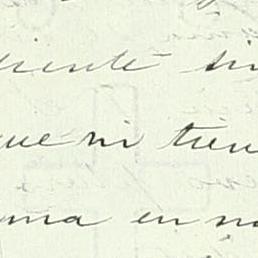 riente sin
que ni tien
ma en no